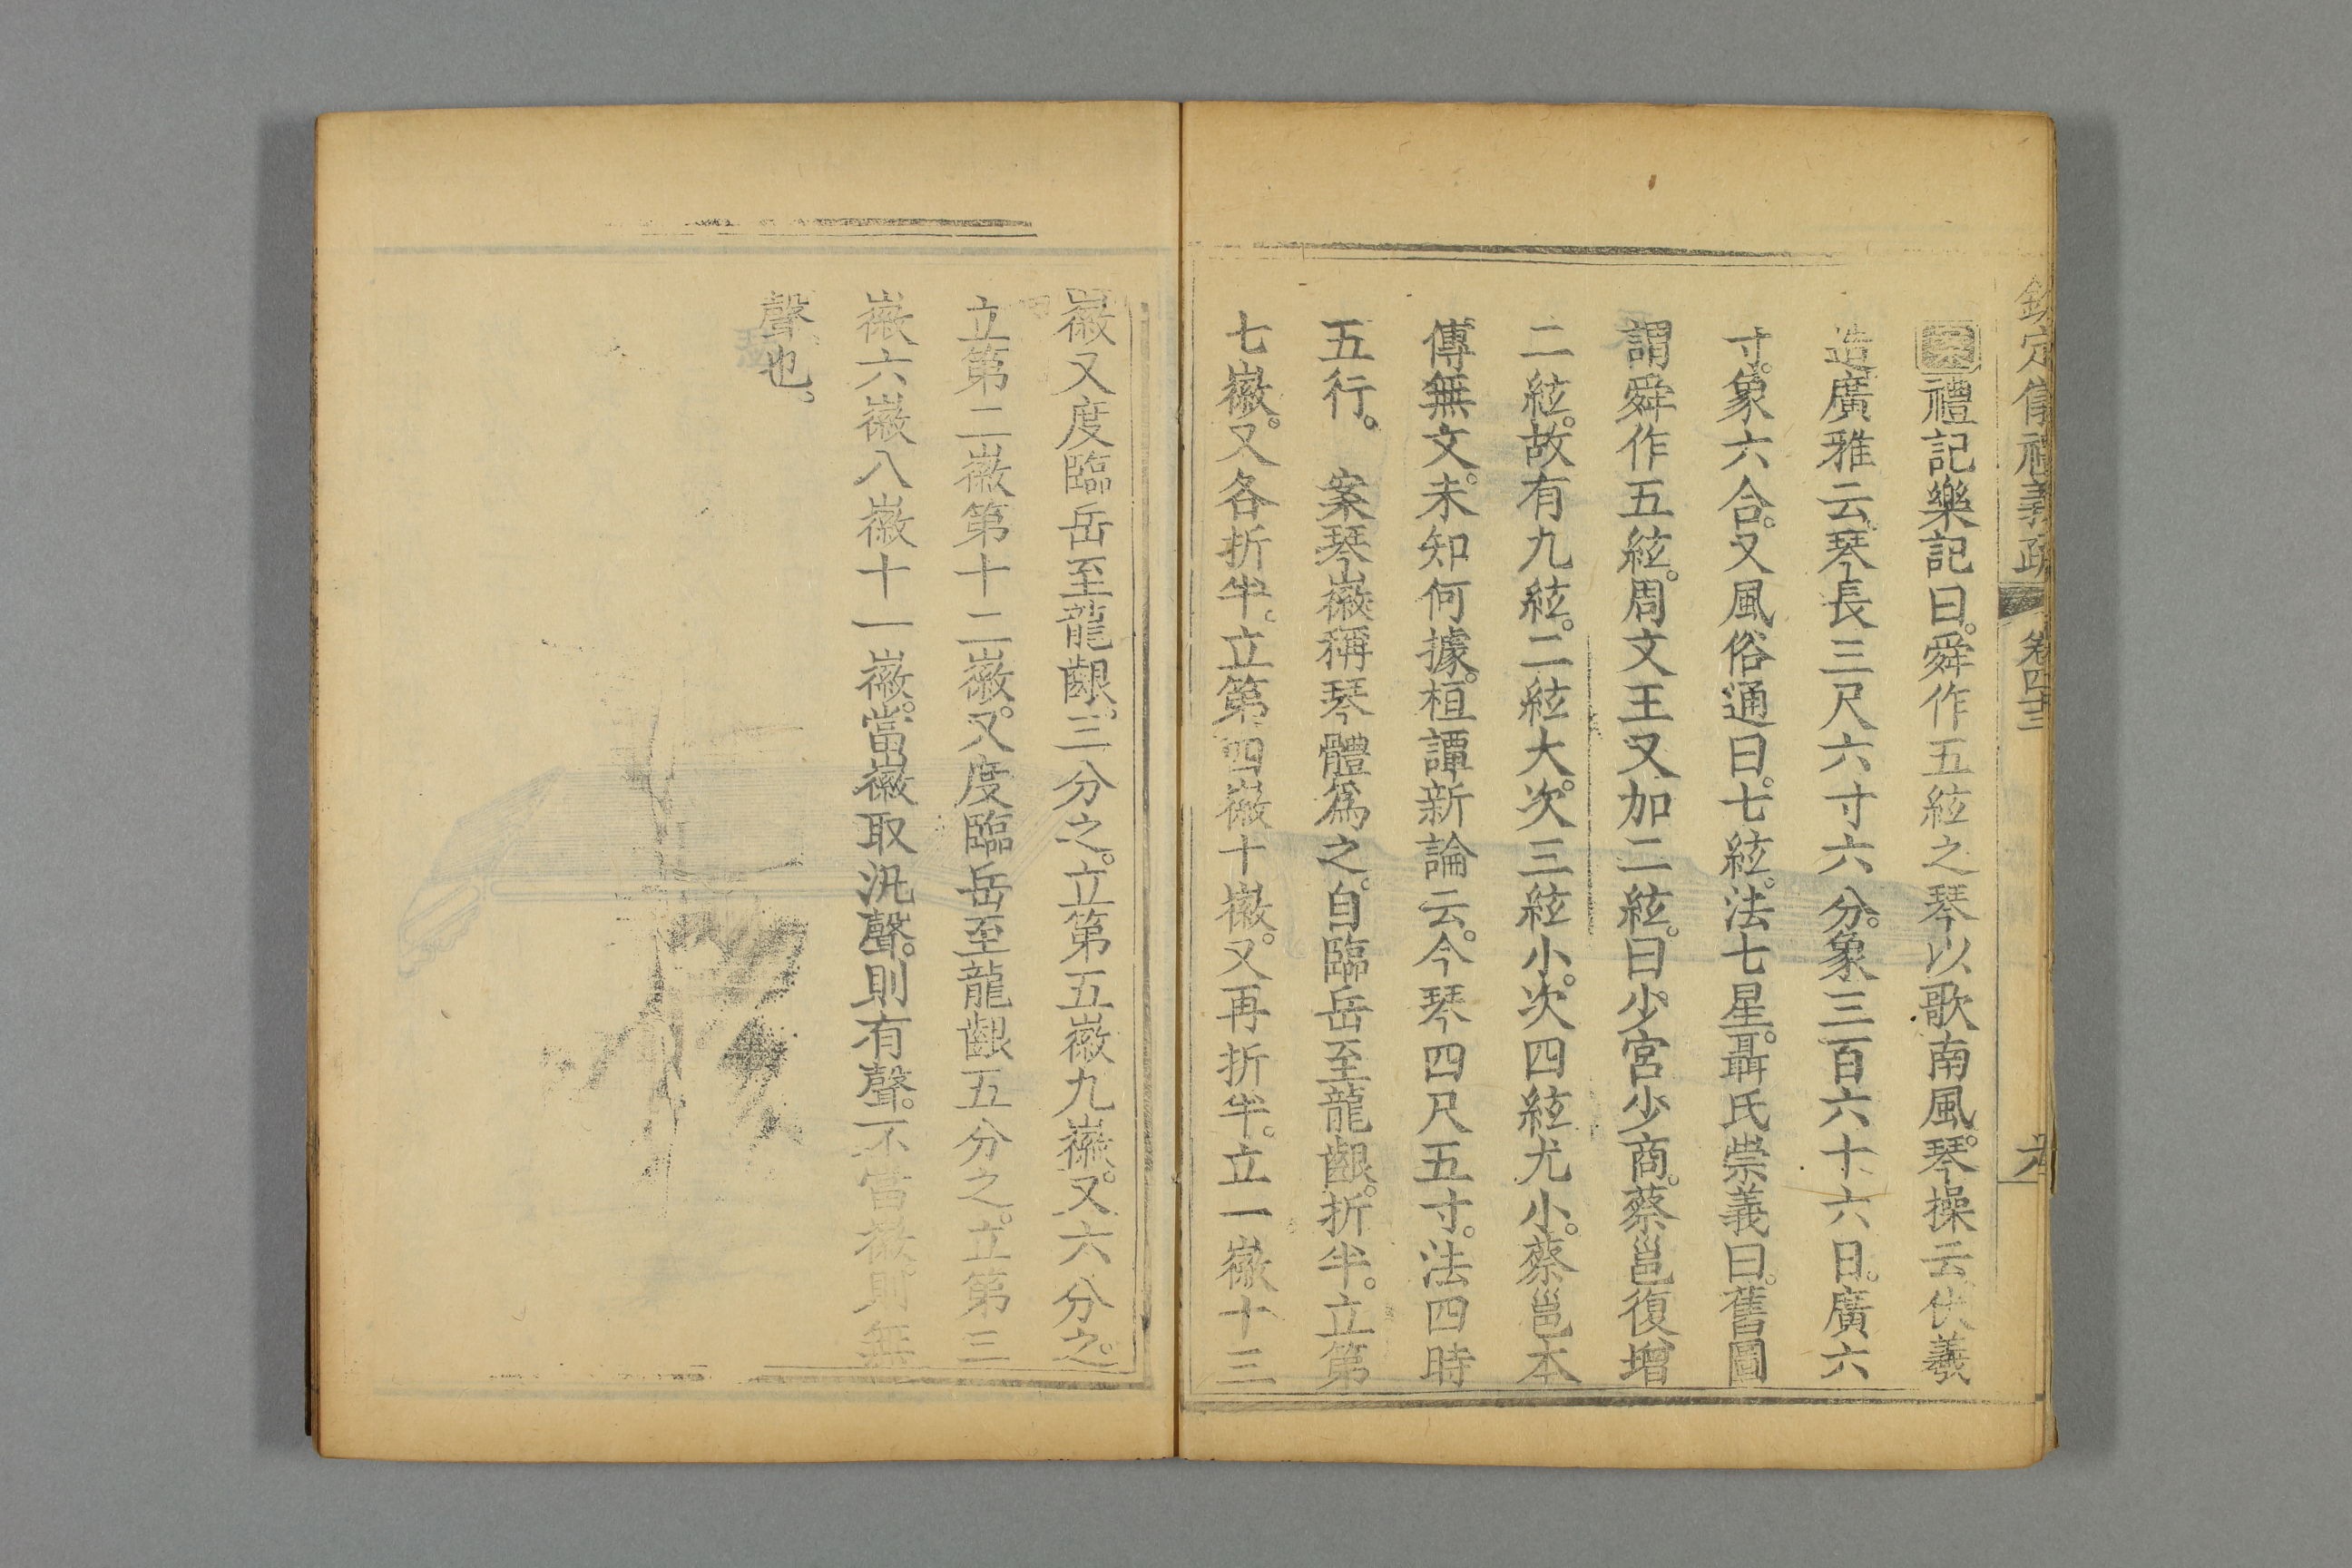 欽定儀禮義疏 卷四十三
案禮記樂記曰。舜作五絃之琴以歌南風。琴操云伏羲
造廣雅云。琴長三尺六寸六分。象三百六十六日。廣六
寸。象六合。又風俗通曰。七絃。法七星。聶氏崇義曰。舊圖
謂舜作五絃。周文王又加二絃。曰少宮少商。蔡邕復增
二絃。故有九絃。二絃大。次三絃小。次四絃尤小。蔡邕本
傳無文。未知何據。桓譚新論云。今琴四尺五寸。法四時
五行。 案琴徽稱琴體為之。自臨岳至龍齦。折半。立第
七徽。又各折半。立第四徽十徽。又再折半。立一徽十三
徽又度臨岳至龍齦。三分之。立第五徽九徽。又六分之。
立第二徽第十二徽。又度臨岳至龍齦五分之。立第三
徽六徽八徽十一徽。當徽取汎聲。則有聲。不當徽則無
聲也。